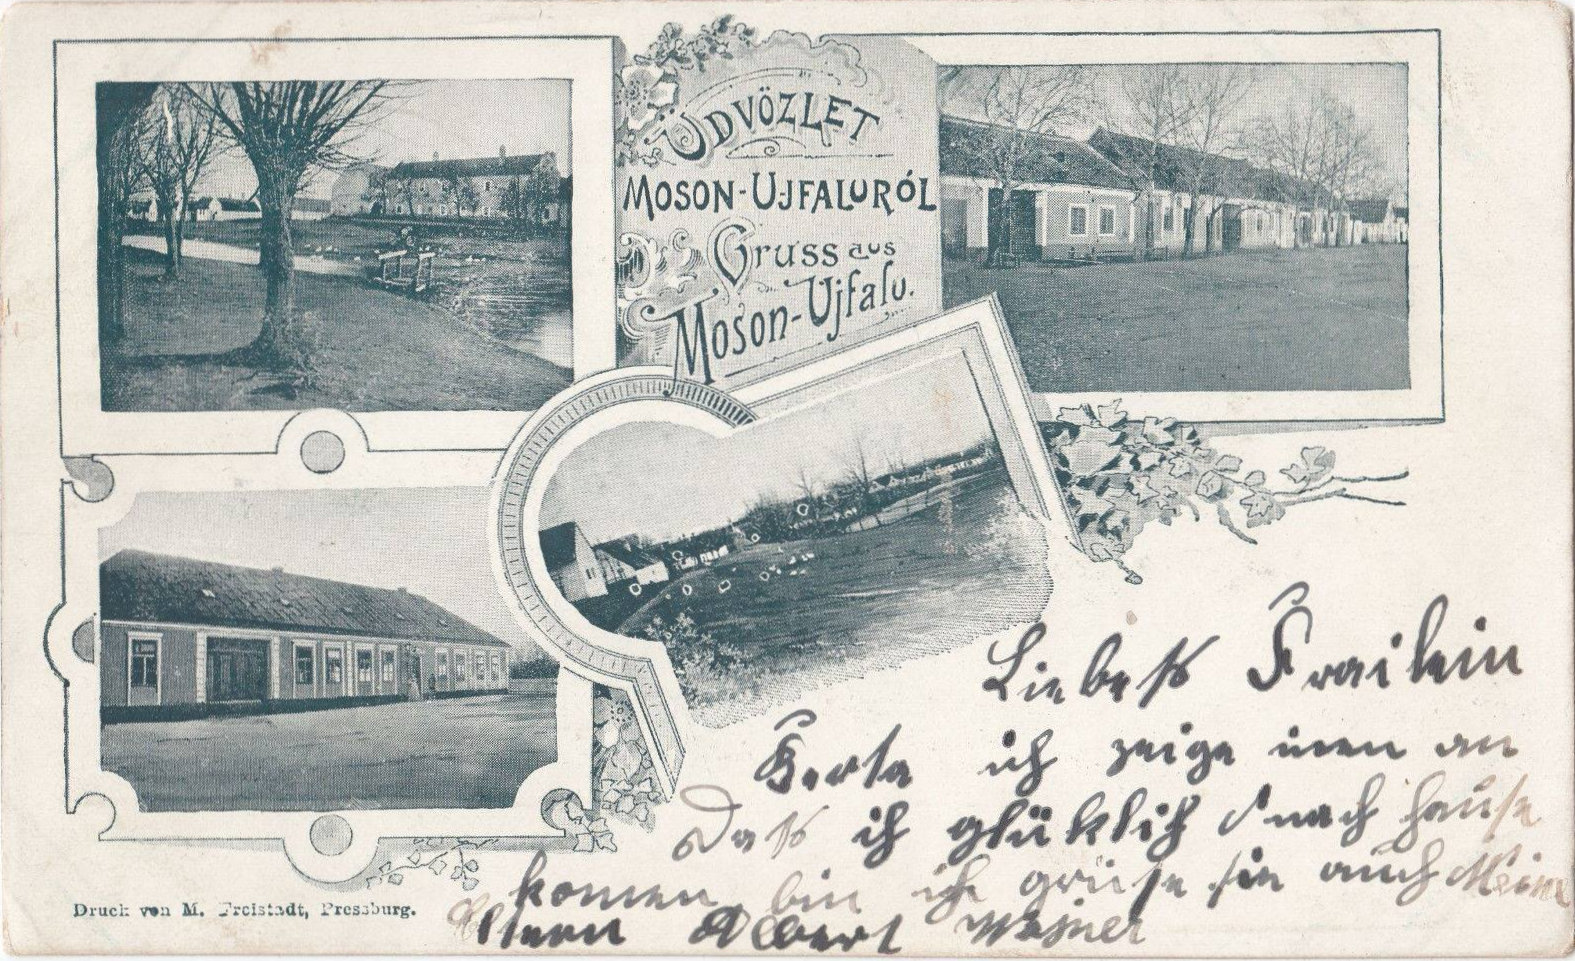 ÜDVÖZLET
MOSON-UJFALURÓL
Gruss aus
Moson-Ujfalu.
Liebess Frailein
Berta ich zeige inen an
Dass ich glücklich nach Hause
komen bin ich grüse sie auch Meine
Eltern Albert
Druck von M. Freistadt, Pressburg.